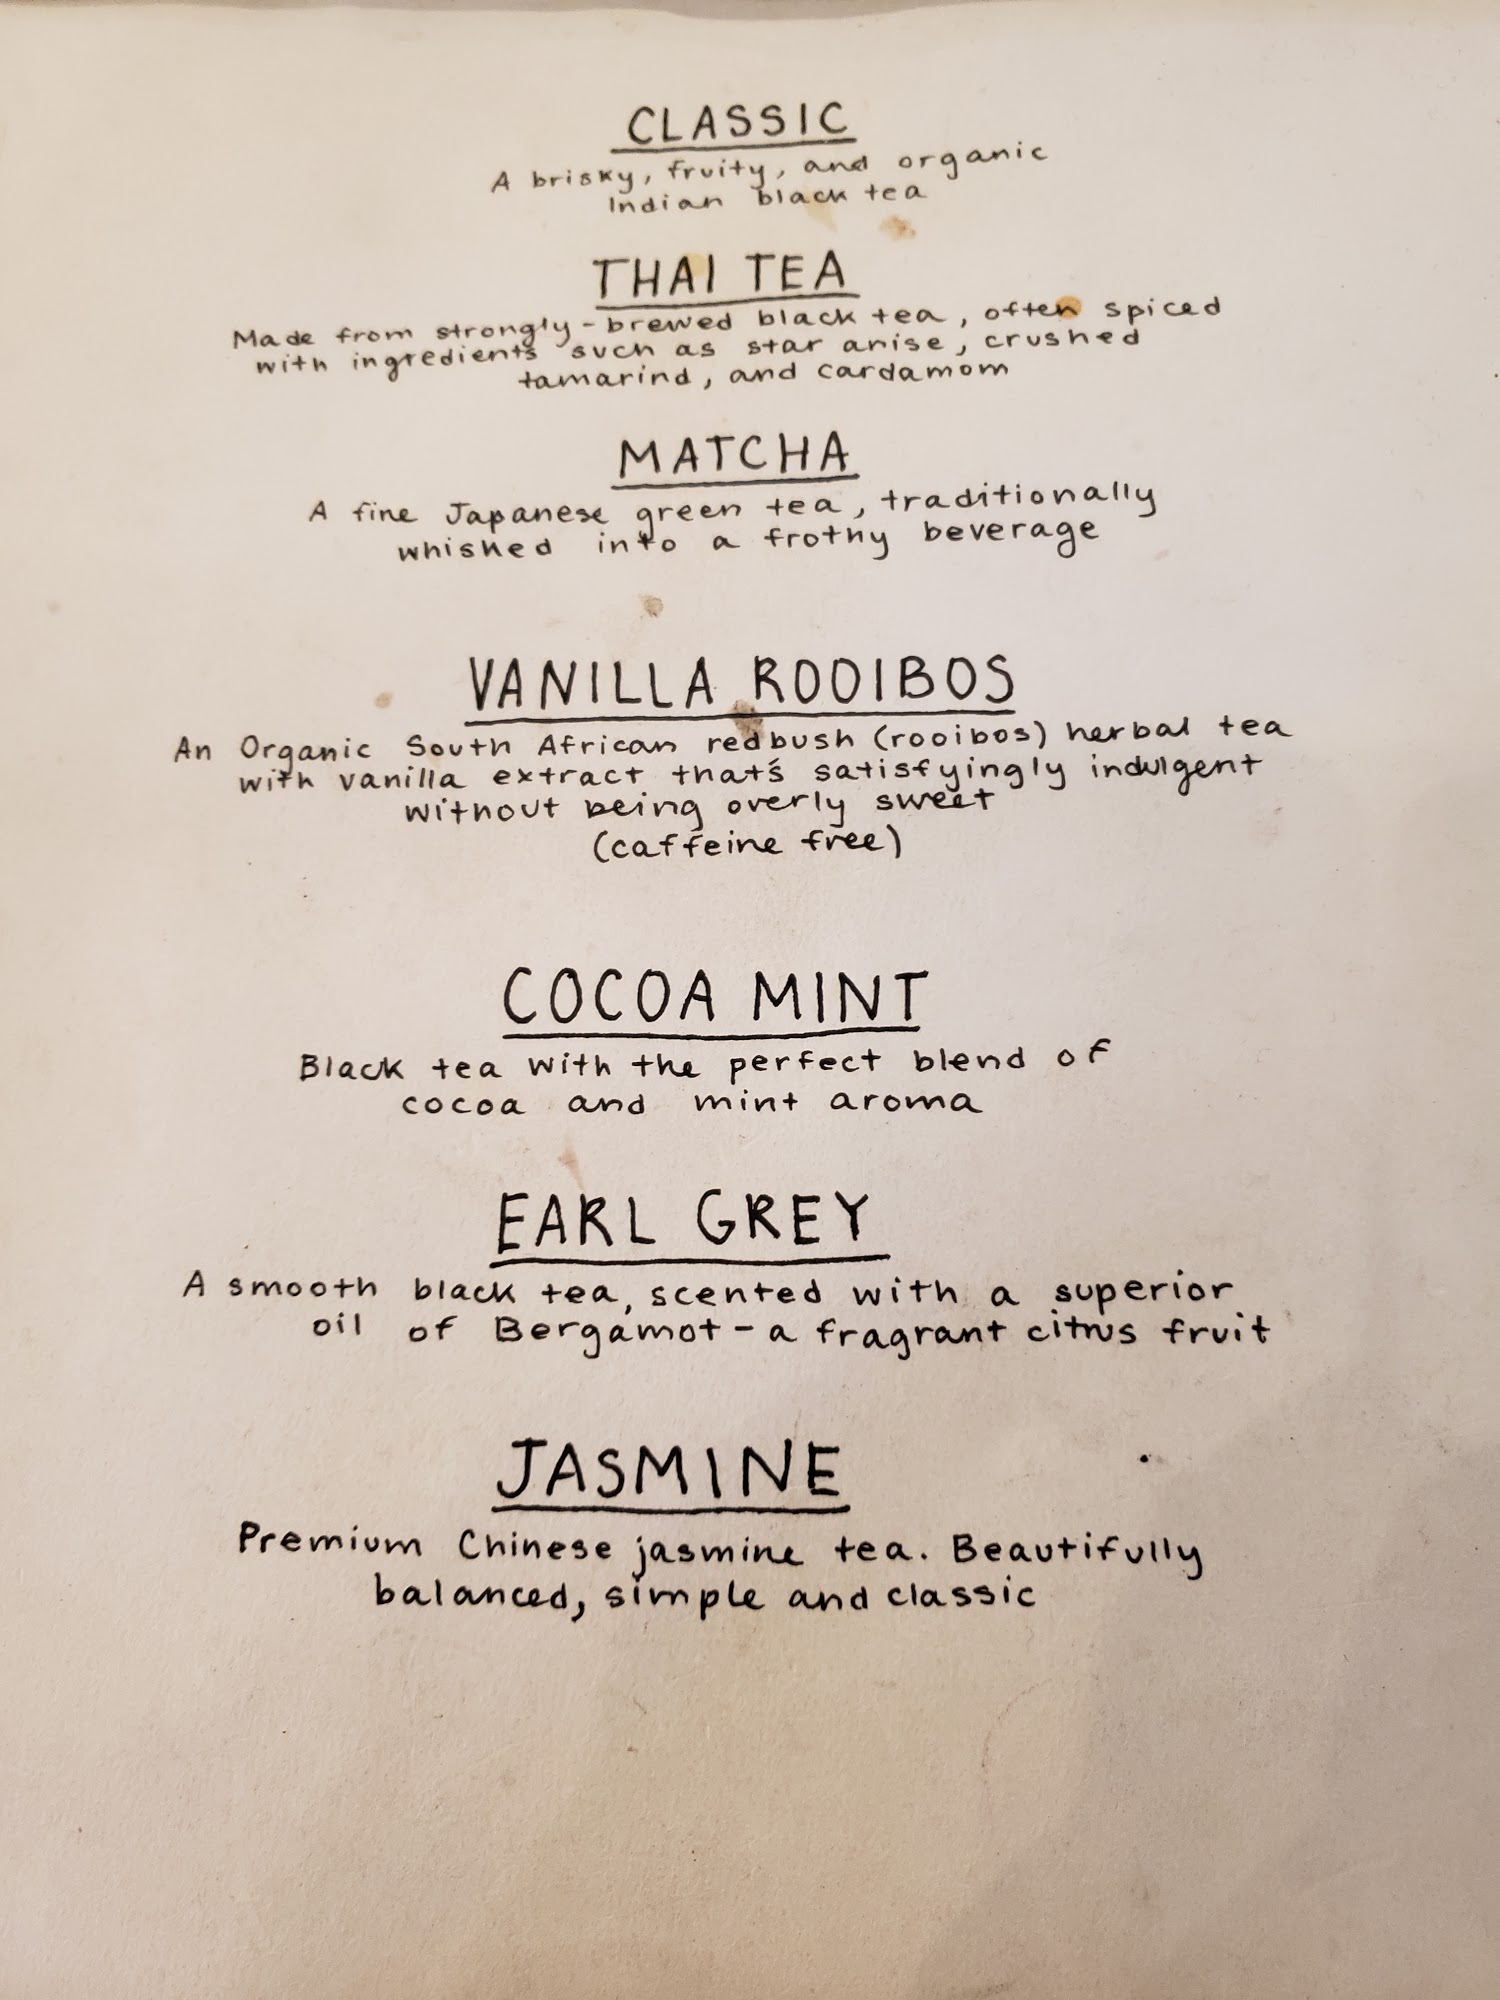 CLASSIC
A brisky, fruity, and organic
Indian black tea
THAI TEA
Made from strongly-brewed black tea, often spiced
with ingredients such as star anise, crushed
tamarind, and cardamom
MATCHA
A fine Japanese green tea, traditionally
whisked into a frothy beverage
VANILLA ROOIBOS
An Organic South African redbush (rooibos) herbal tea
with vanilla extract that's satisfyingly indulgent
without being overly sweet
(caffeine free)
COCOA MINT
Black tea with the perfect blend of
cocoa and mint aroma
EARL GREY
A smooth black tea, scented with a superior
oil of Bergamot - a fragrant citrus fruit
JASMINE
Premium Chinese jasmine tea. Beautifully
balanced, simple and classic